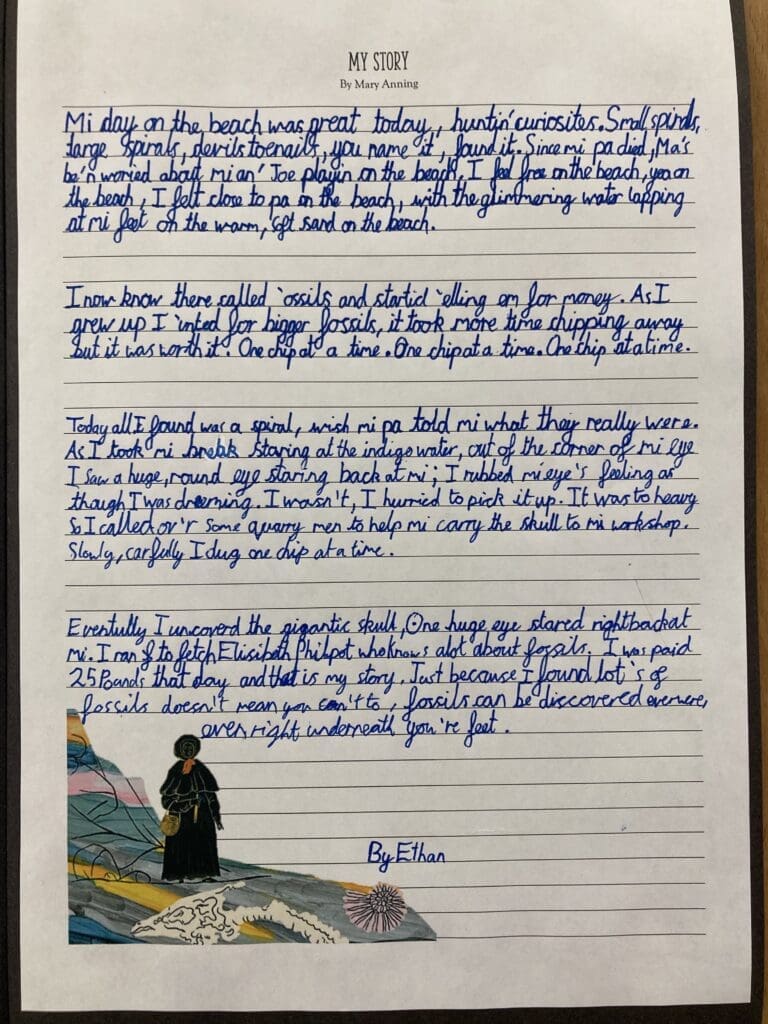 MY STORY
By Mary Anning
Mi day on the beach was great today, huntin' curiosites. Small spirals,
large spirals, devils toenails, you name it, found it. Since mi pa died, Ma's
be'n woried about mi an' Joe playin on the beach, I feel free on the beach, yea on
the beach, I felt close to pa on the beach, with the glimmering water lapping
at mi feet on the warm, soft sand on the beach.
I now know there called 'ossils and startid 'elling em for money. As I
grew up I 'unted for bigger fossils, it took more time chipping away
but it was worth it. One chip at a time. One chip at a time. One chip at a time.
Today all I found was a spiral, wish mi pa told mi what they really were.
As I took mi break staring at the indigo water, out of the corner of mi eye
I saw a huge, round eye staring back at mi; I rubbed mi eye's feeling as
though I was dreeming. I wasn't, I hurried to pick it up. It was to heavy
so I called ov'r some quarry men to help mi carry the skull to mi workshop.
Slowly, carfully I dug one chip at a time.
Eventully I uncoverd the gigantic skull, One huge eye stared right back at
mi. I ran to fetch Elisibeth Philpot who knows alot about fossils. I was paid
25 Pounds that day and that is my story. Just because I found lot's of
fossils doesn't mean you can't to, fossils can be discovered everwere,
even right underneath you're feet.
By Ethan